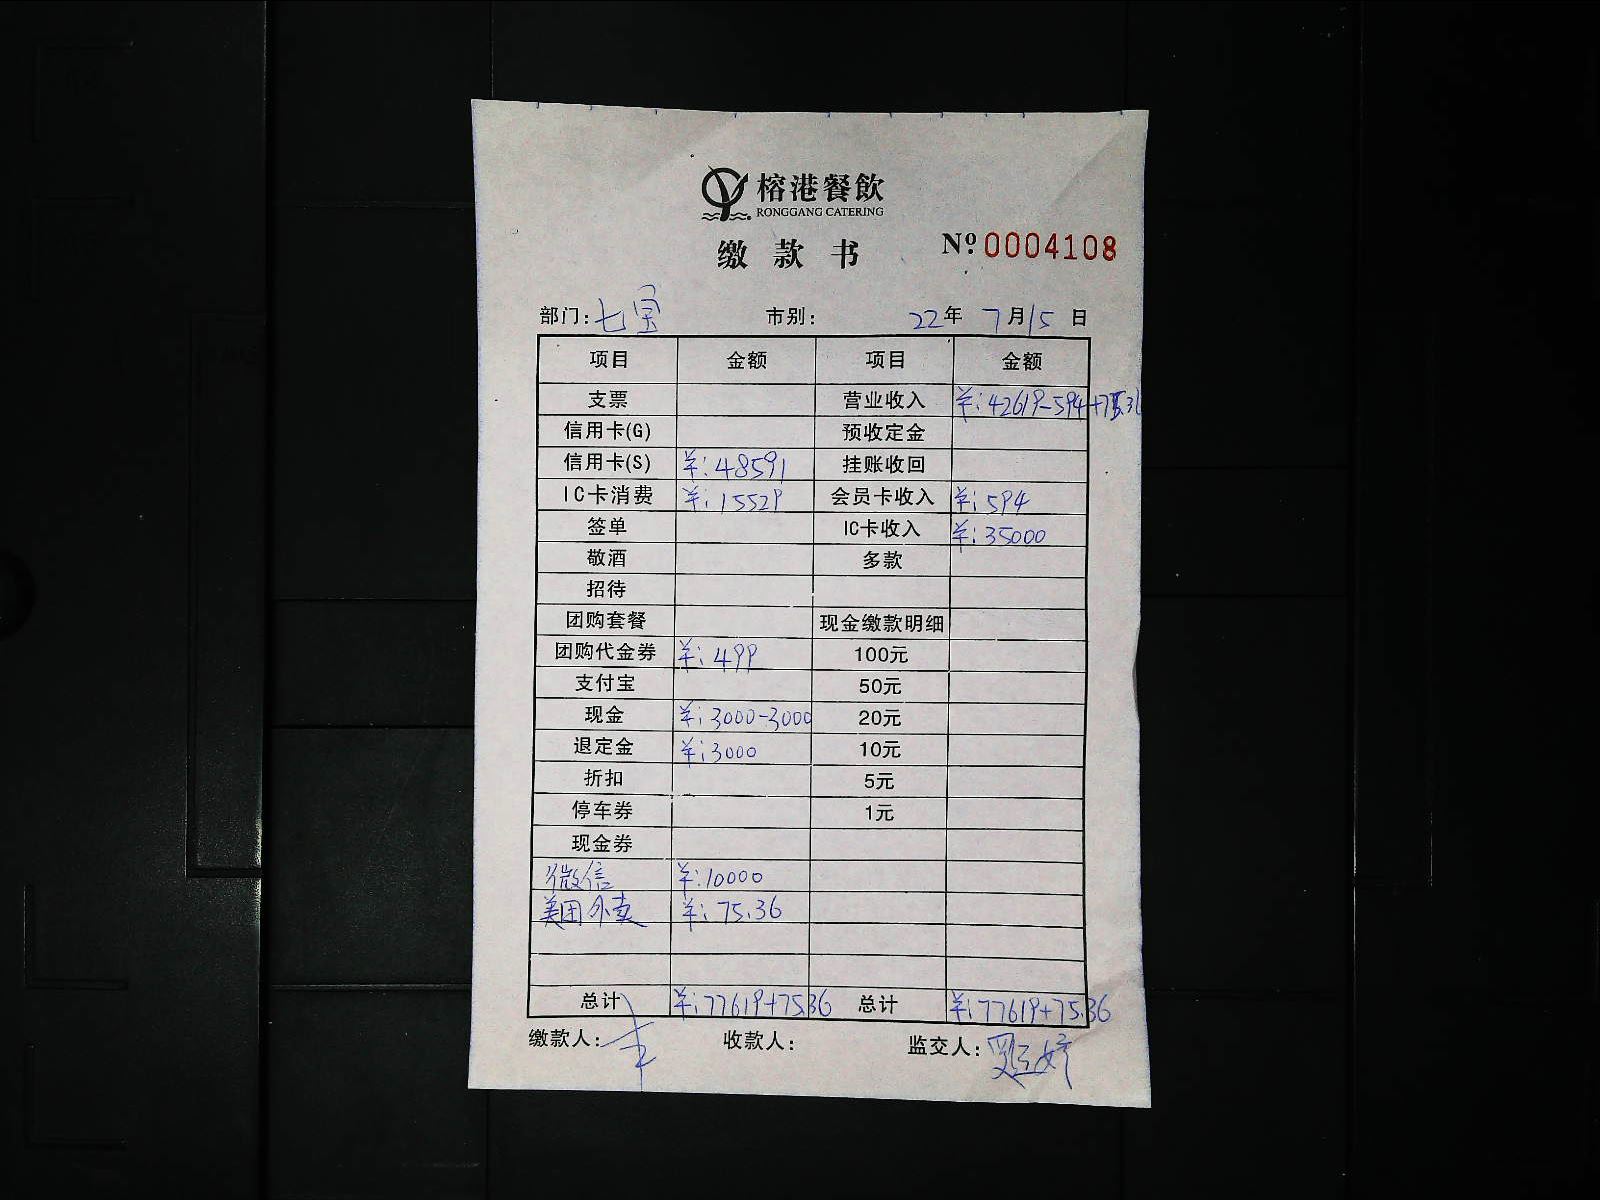 榕港餐飲
RONGGANG CATERING
缴款书 Nº.0004108
部门:七宝 市别: 22年 7月15日
项目 金额 项目 金额
支票 营业收入 ¥:42619-594+75.36
信用卡(G) 预收定金
信用卡(S) ¥:48591 挂账收回
IC卡消费 ¥:15529 会员卡收入 ¥:594
签单 IC卡收入 ¥:35000
敬酒 多款
招待
团购套餐 现金缴款明细
团购代金券 ¥:499 100元
支付宝 50元
现金 ¥:3000-3000 20元
退定金 ¥:3000 10元
折扣 5元
停车券 1元
现金券
微信 ¥:10000
美团外卖 ¥:75.36
总计 ¥:77619+75.36 总计 ¥:77619+75.36
缴款人: 收款人: 监交人: